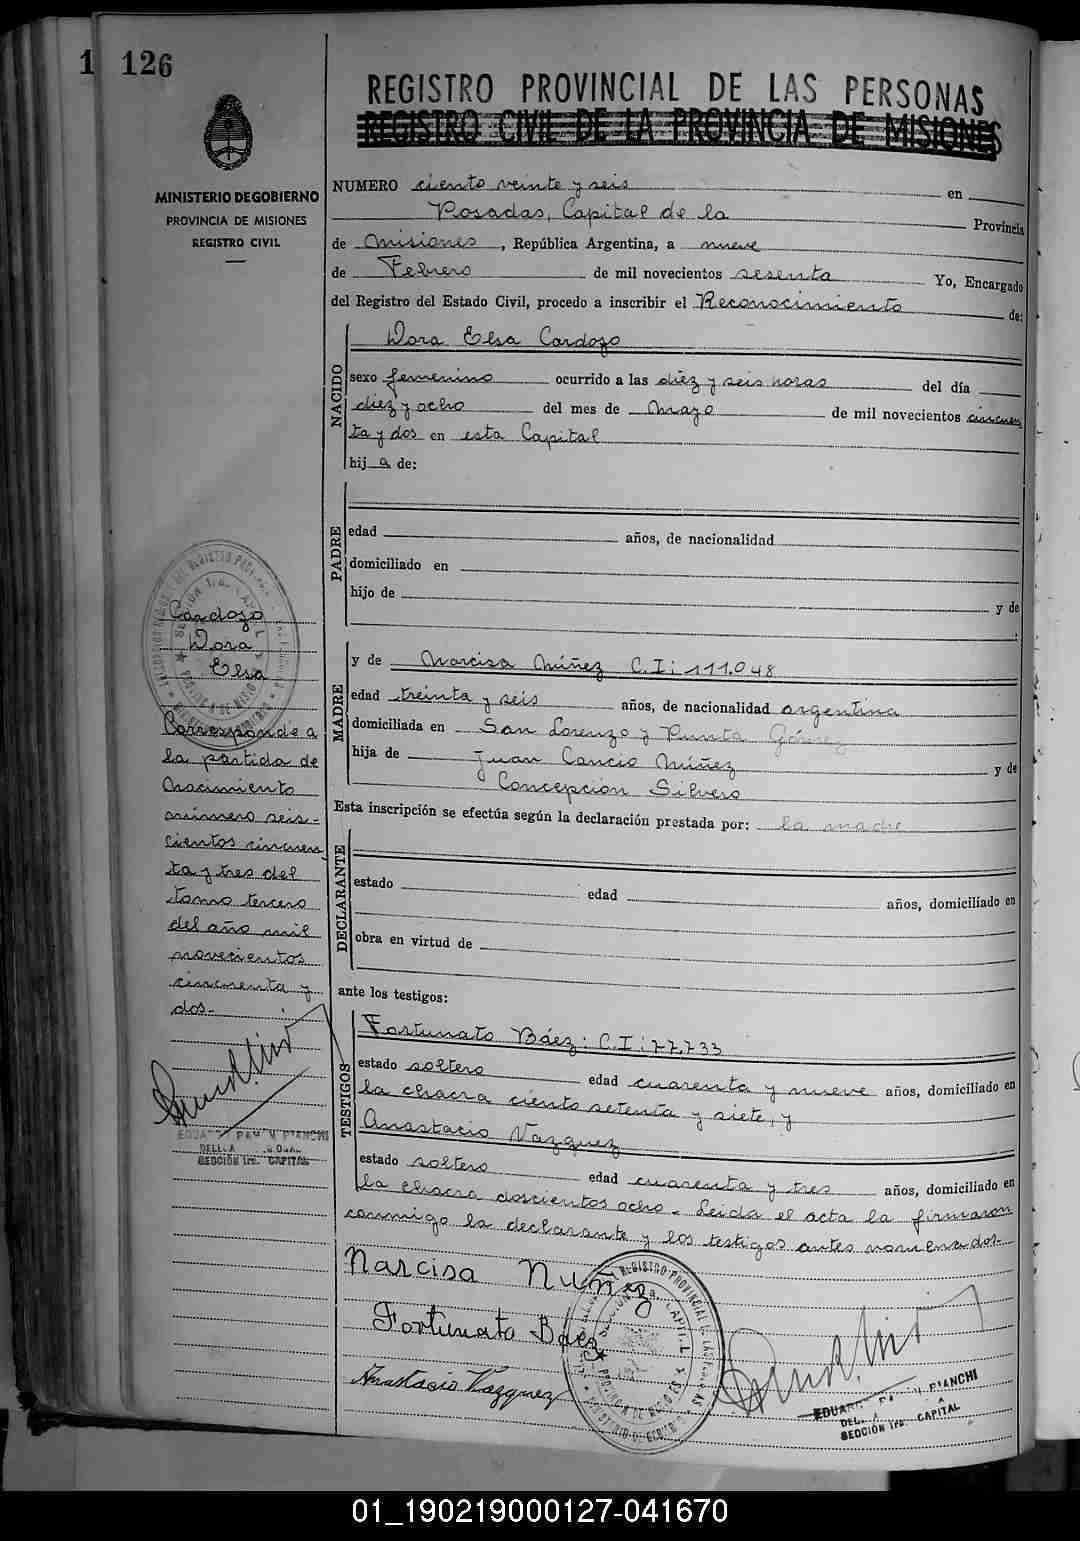 1 126
REGISTRO PROVINCIAL DE LAS PERSONAS
REGISTRO CIVIL DE LA PROVINCIA DE MISIONES
MINISTERIO DE GOBIERNO
PROVINCIA DE MISIONES
REGISTRO CIVIL
NUMERO ciento veinte y seis en
Posadas, Capital de la Provincia
de Misiones, República Argentina, a nueve
de Febrero de mil novecientos sesenta Yo, Encargado
del Registro del Estado Civil, procedo a inscribir el Reconocimiento de:
NACIDO
Dora Elsa Cardozo
sexo femenino ocurrido a las diez y seis horas del día
diez y ocho del mes de Mayo de mil novecientos cincuen
ta y dos en esta Capital
hij a de:
PADRE
edad años, de nacionalidad
domiciliado en
hijo de y de
:
MADRE
y de Narcisa Núñez C.I: 111.048
edad treinta y seis años, de nacionalidad argentina
domiciliada en San Lorenzo y Punta Gómez
hija de Juan Cancio Núñez y de
Concepción Silvero
Esta inscripción se efectúa según la declaración prestada por: la madre
DECLARANTE
estado edad años, domiciliado en
obra en virtud de
ante los testigos:
TESTIGOS
Fortunato Báez: C.I: 77.733
estado soltero edad cuarenta y nueve años, domiciliado en
la chacra ciento setenta y siete, y
Anastacio Vazquez
estado soltero edad cuarenta y tres años, domiciliado en
la chacra doscientos ocho. Leida el acta la firmaron
conmigo la declarante y los testigos antes nomenados.-
Narcisa Nuñez
Fortunato Báez
Anastacio Vazquez
BIANCHI
SECCIÓN 1ra. CAPITAL
Cardozo
Dora
Elsa
Corresponde a
la partida de
Nacimiento
número seis-
cientos cincuen
ta y tres del
tomo tercero
del año mil
novecientos
cincuenta y
dos.-
BIANCHI
SECCIÓN 1ra. CAPITAL
01_190219000127-041670